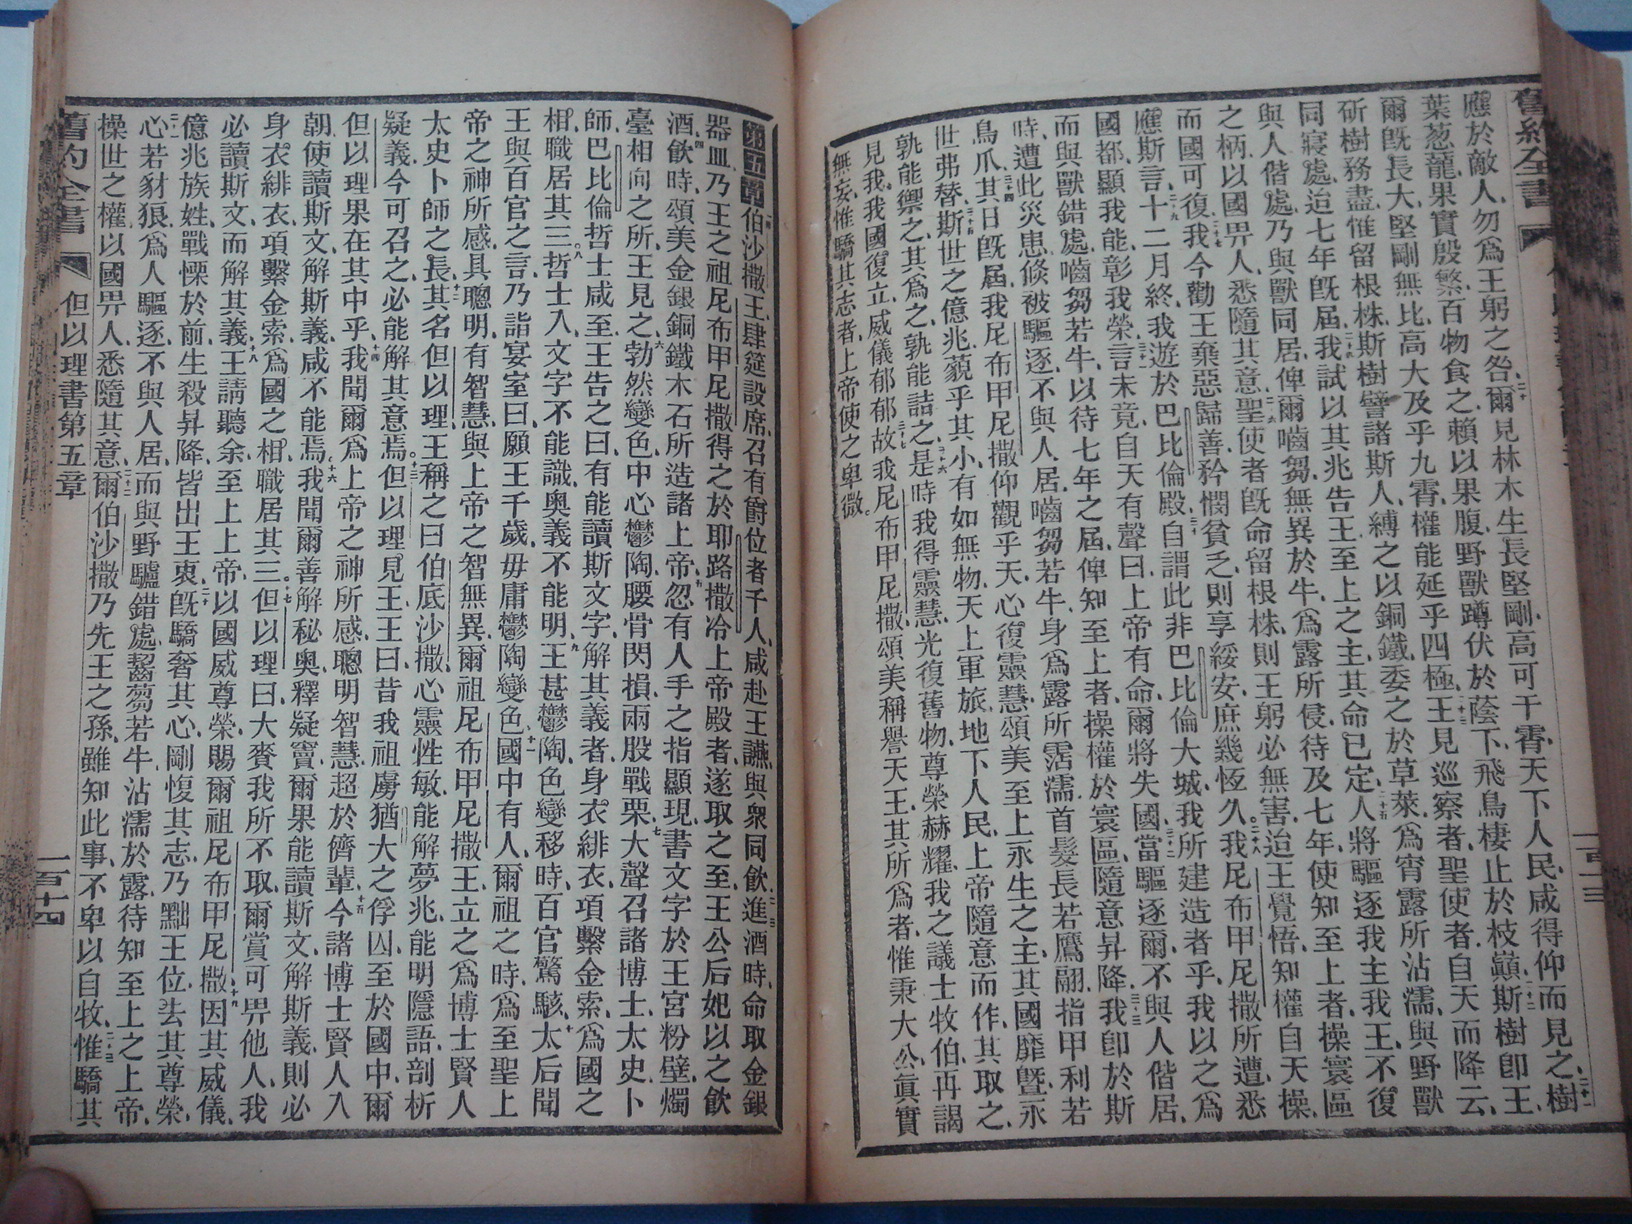 舊約全書
應於敵人、勿爲王躬之咎、二十爾見林木生長堅剛、高可干霄、天下人民、咸得仰而見之、二十一樹
葉葱蘢、果實殷繁、百物食之、賴以果腹、野獸蹲伏於蔭下、飛鳥棲止於枝巔、斯樹卽王、二十二
爾旣長大、堅剛無比、高大及乎九霄、權能延乎四極、二十三王見巡察者、聖使者自天而降、云、
斫樹務盡、惟留根株、斯樹譬諸斯人、縛之以銅鐵、委之於草萊、爲宵露所沾濡、與野獸
同寢處、迨七年旣屆、二十四我試以其兆告王、至上之主、其命已定、二十五人將驅逐我主我王、不復
與人偕處、乃與獸同居、俾爾嚙芻、無異於牛、爲露所侵、待及七年、使知至上者、操寰區
之柄、以國畀人、悉隨其意、二十六聖使者旣命留根株、則王躬必無害、迨王覺悟、知權自天操、
而國可復、二十七我今勸王棄惡歸善、矜憫貧乏、則享綏安、庶幾恆久、二十八我尼布甲尼撒所遭、悉
應斯言、二十九十二月終、我遊於巴比倫殿、三十自謂此非巴比倫大城、我所建造者乎、我以之爲
國都、顯我能、彰我榮、三十一言未竟、自天有聲曰、上帝有命、爾將失國、三十二當驅逐爾、不與人偕居、
而與獸錯處、嚙芻若牛、以待七年之屆、俾知至上者、操權於寰區、隨意昇降、三十三我卽於斯
時、遭此災患、倏被驅逐、不與人居、嚙芻若牛、身爲露所霑濡、首髮長若鷹翮、指甲利若
鳥爪、三十四其日旣屆、我尼布甲尼撒仰觀乎天、心復靈慧、頌美至上永生之主、其國靡曁、永
世弗替、三十五斯世之億兆、藐乎其小、有如無物、天上軍旅、地下人民、上帝隨意而作、其取之、
孰能禦之、其爲之、孰能詰之、三十六是時我得靈慧、光復舊物、尊榮赫耀、我之議士牧伯再謁
見我、我國復立、威儀郁郁、三十七故我尼布甲尼撒頌美稱譽天王、其所爲者、惟秉大公、眞實
無妄、惟驕其志者、上帝使之卑微。
第五章 伯沙撒王肆筵設席、召有爵位者千人、咸赴王讌、與衆同飮、二進酒時、命取金銀
器皿、乃王之祖尼布甲尼撒得之於耶路撒冷上帝殿者、三遂取之至、王公后妃以之飮
酒、四飮時頌美金銀銅鐵木石所造諸上帝、五忽有人手之指顯現、書文字於王宮粉壁、燭
臺相向之所、王見之、六勃然變色、中心鬱陶、腰骨閃損、兩股戰栗、七大聲召諸博士太史卜
師、巴比倫哲士咸至、王告之曰、有能讀斯文字、解其義者、身衣緋衣、項繫金索、爲國之
相、職居其三、八哲士入、文字不能識、奧義不能明、九王甚鬱陶、色變移時、百官驚駭、十太后聞
王與百官之言、乃詣宴室曰、願王千歲、毋庸鬱陶變色、十一國中有人、爾祖之時、爲至聖上
帝之神所感、具聰明、有智慧、與上帝之智無異、爾祖尼布甲尼撒王立之爲博士賢人
太史卜師之長、十二其名但以理、王稱之曰伯底沙撒、心靈性敏、能解夢兆、能明隱語、剖析
疑義、今可召之、必能解其意焉、十三但以理見王、王曰、昔我祖虜猶大之俘囚、至於國中、爾
但以理果在其中乎、十四我聞爾爲上帝之神所感、聰明智慧、超於儕輩、十五今諸博士賢人入
朝、使讀斯文、解斯義、咸不能焉、十六我聞爾善解秘奧、釋疑竇、爾果能讀斯文、解斯義、則必
身衣緋衣、項繫金索、爲國之相、職居其三、十七但以理曰、大賚我所不取、爾賞可畀他人、我
必讀斯文、而解其義、王請聽余、十八至上上帝、以國威尊榮、賜爾祖尼布甲尼撒、十九因其威儀、
億兆族姓、戰慄於前、生殺昇降、皆出王衷、二十旣驕奢其心、剛愎其志、乃黜王位、去其尊榮、
二十一心若豺狼、爲人驅逐、不與人居、而與野驢錯處、齧芻若牛、沾濡於露、待知至上之上帝、
操世之權、以國畀人、悉隨其意、二十二爾伯沙撒乃先王之孫、雖知此事、不卑以自牧、二十三惟驕其
舊約全書 但以理書第五章 一百十四